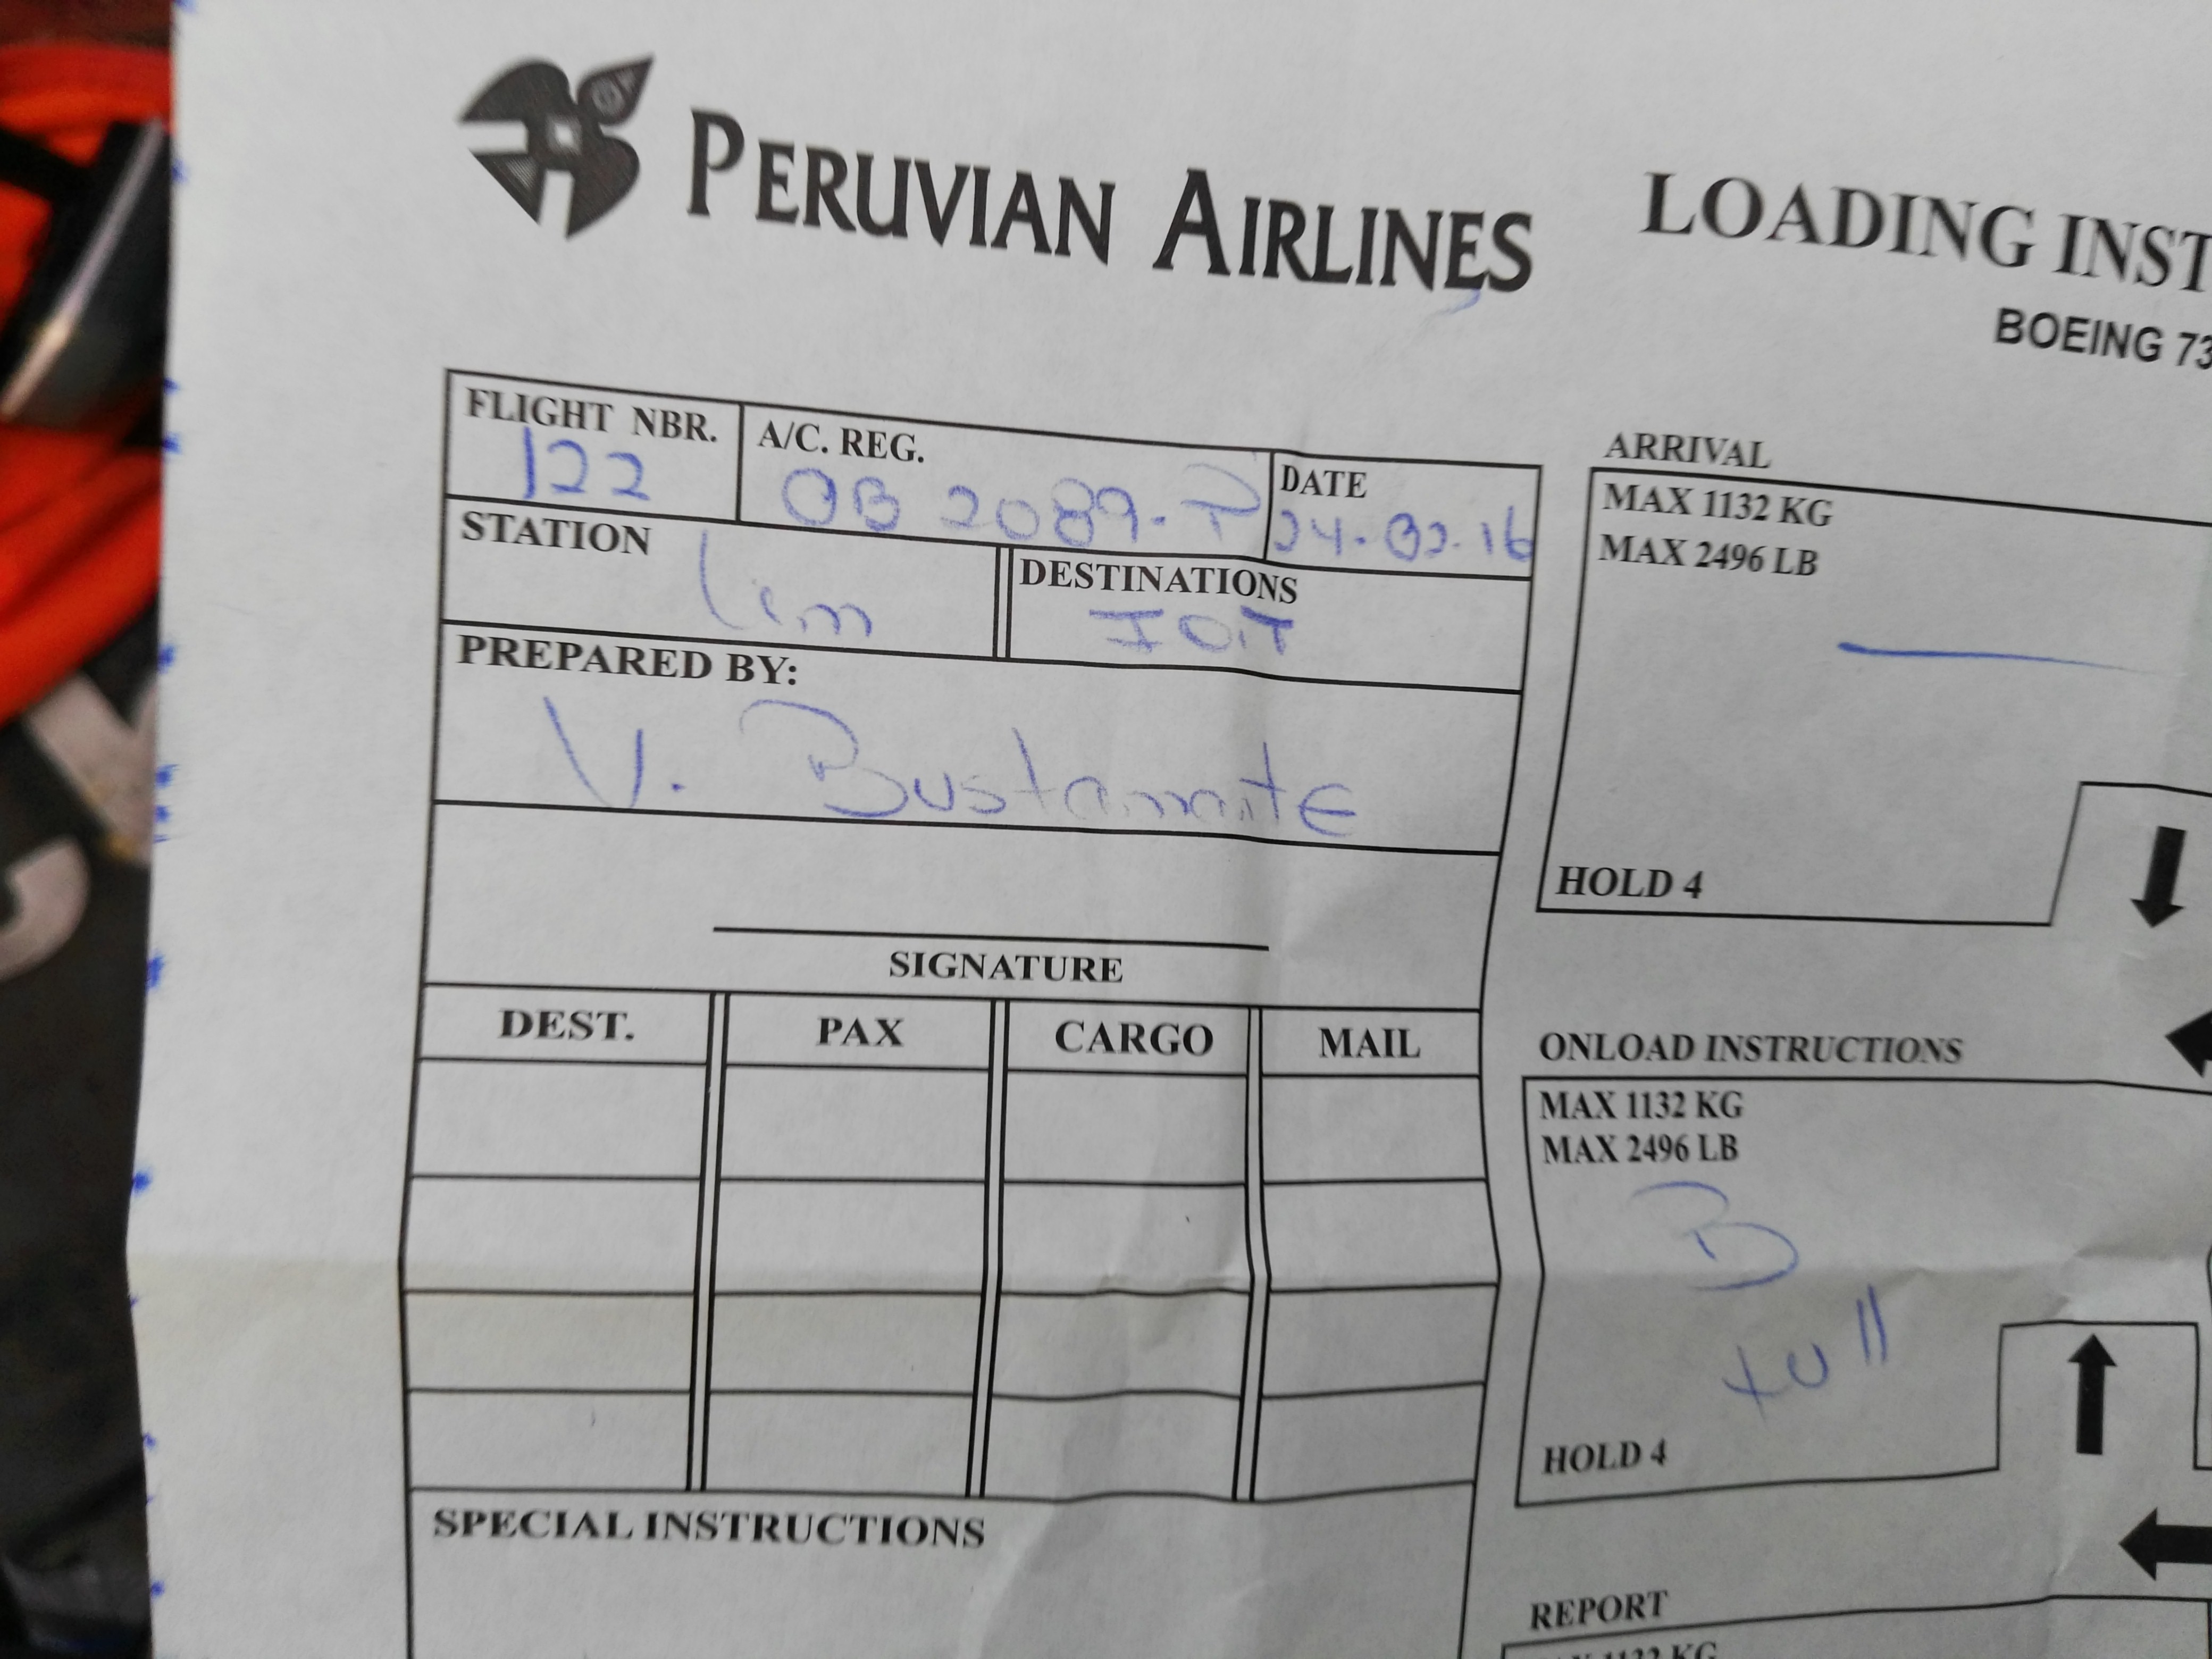 PERUVIAN AIRLINES
LOADING INST
BOEING 73
FLIGHT NBR.
122
A/C. REG.
OB 2089-P
DATE
STATION
Lim
DESTINATIONS
PREPARED BY:
V. Bustamante
SIGNATURE
DEST. PAX CARGO MAIL
SPECIAL INSTRUCTIONS
ARRIVAL
MAX 1132 KG
MAX 2496 LB
HOLD 4
ONLOAD INSTRUCTIONS
MAX 1132 KG
MAX 2496 LB
B
full
HOLD 4
REPORT